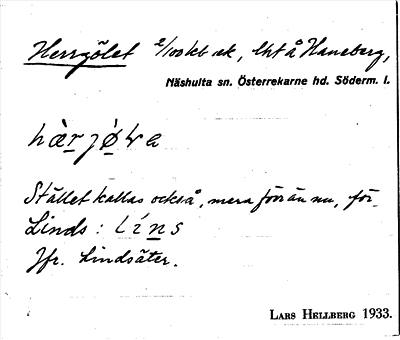 Herrgölet 2/100 kb ek, lht å Haneberg,
Näshulta sn. Österrekarne hd. Söderm. l.
Stället kallas också, mera förr än nu, för
Linds: líns
Jfr. Lindsäter.
LARS HELLBERG 1933.